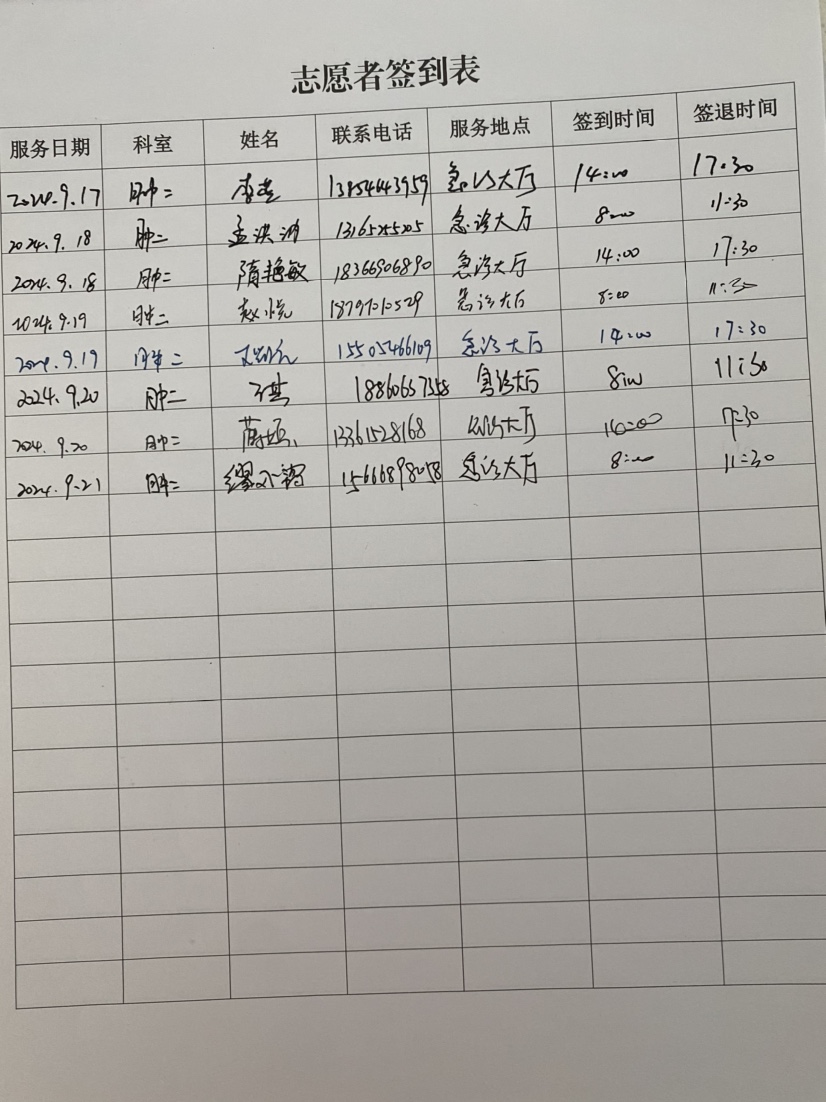 志愿者签到表
服务日期 科室 姓名 联系电话 服务地点 签到时间 签退时间
2024.9.17 肿二 13854643959 急诊大厅 14:00 17:30
2024.9.18 肿二 孟洪冲 急诊大厅 8:00 11:30
2024.9.18 肿二 隋艳敏 18366906890 急诊大厅 14:00 17:30
2024.9.19 肿二 赵悦 18797010529 急诊大厅 8:00 11:30
2024.9.19 肿二 15505466109 急诊大厅 14:00 17:30
2024.9.20 肿二 急诊大厅 8:00 11:30
2024.9.20 肿二 13361528168 急诊大厅 14:00 17:30
2024.9.21 肿二 急诊大厅 8:00 11:30